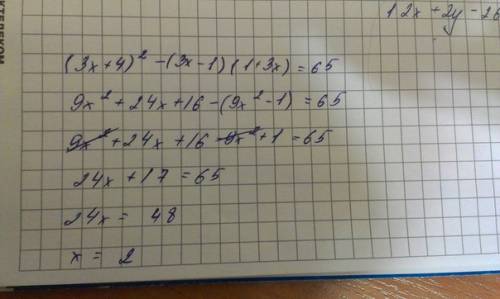 12x+2y-26
(3x+4)² -(3x-1)(1+3x)=65
9x²+24x+16-(9x²-1)=65
9x²+24x+16-9x²+1=65
24x+17=65
24x= 48
x= 2